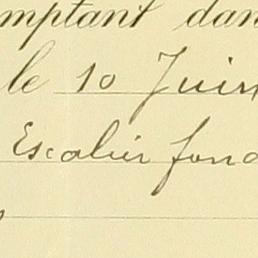 mptant dan
le 10 Juin
Escalier fond